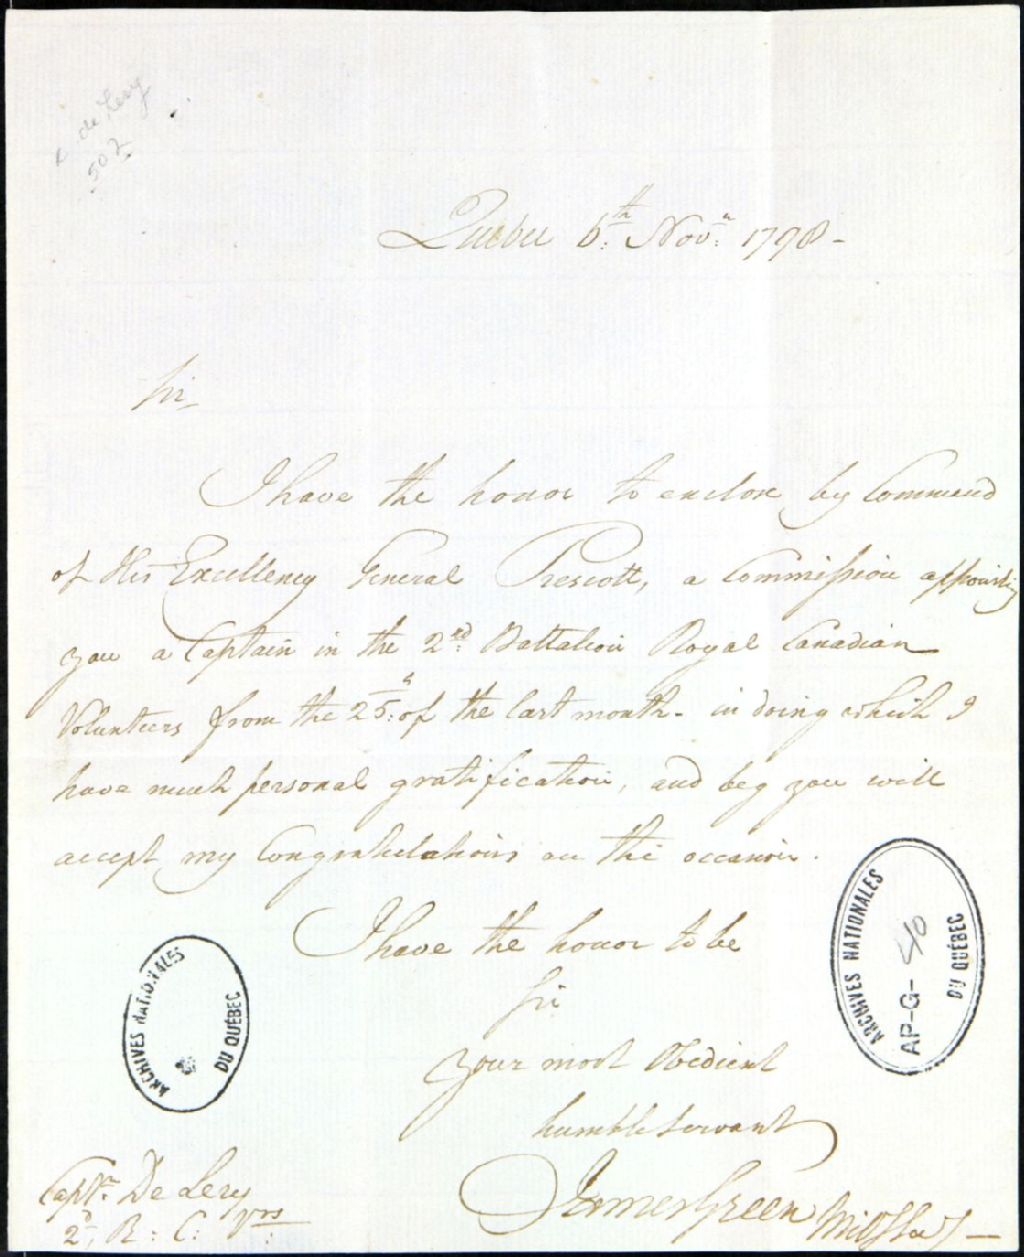 de Lery
502
Quebec 6th Novr 1798-
Sir,
I have the honor to enclose by Command
of His Excellency General Prescott, a Commission appointing
you a Captain in the 2nd Battalion Royal Canadian
Volunteers from the 25th of the last month - in doing which I
have much personal gratification, and beg you will
accept my Congratulations on the occasion.
I have the honor to be
Sir
Your most Obedient
humble Servant
James Green Mil. Secy
Captn. De Lery
2d. R. C. Vrs
ARCHIVES NATIONALES
DU QUÉBEC
ARCHIVES NATIONALES
AP-G-40
DU QUÉBEC